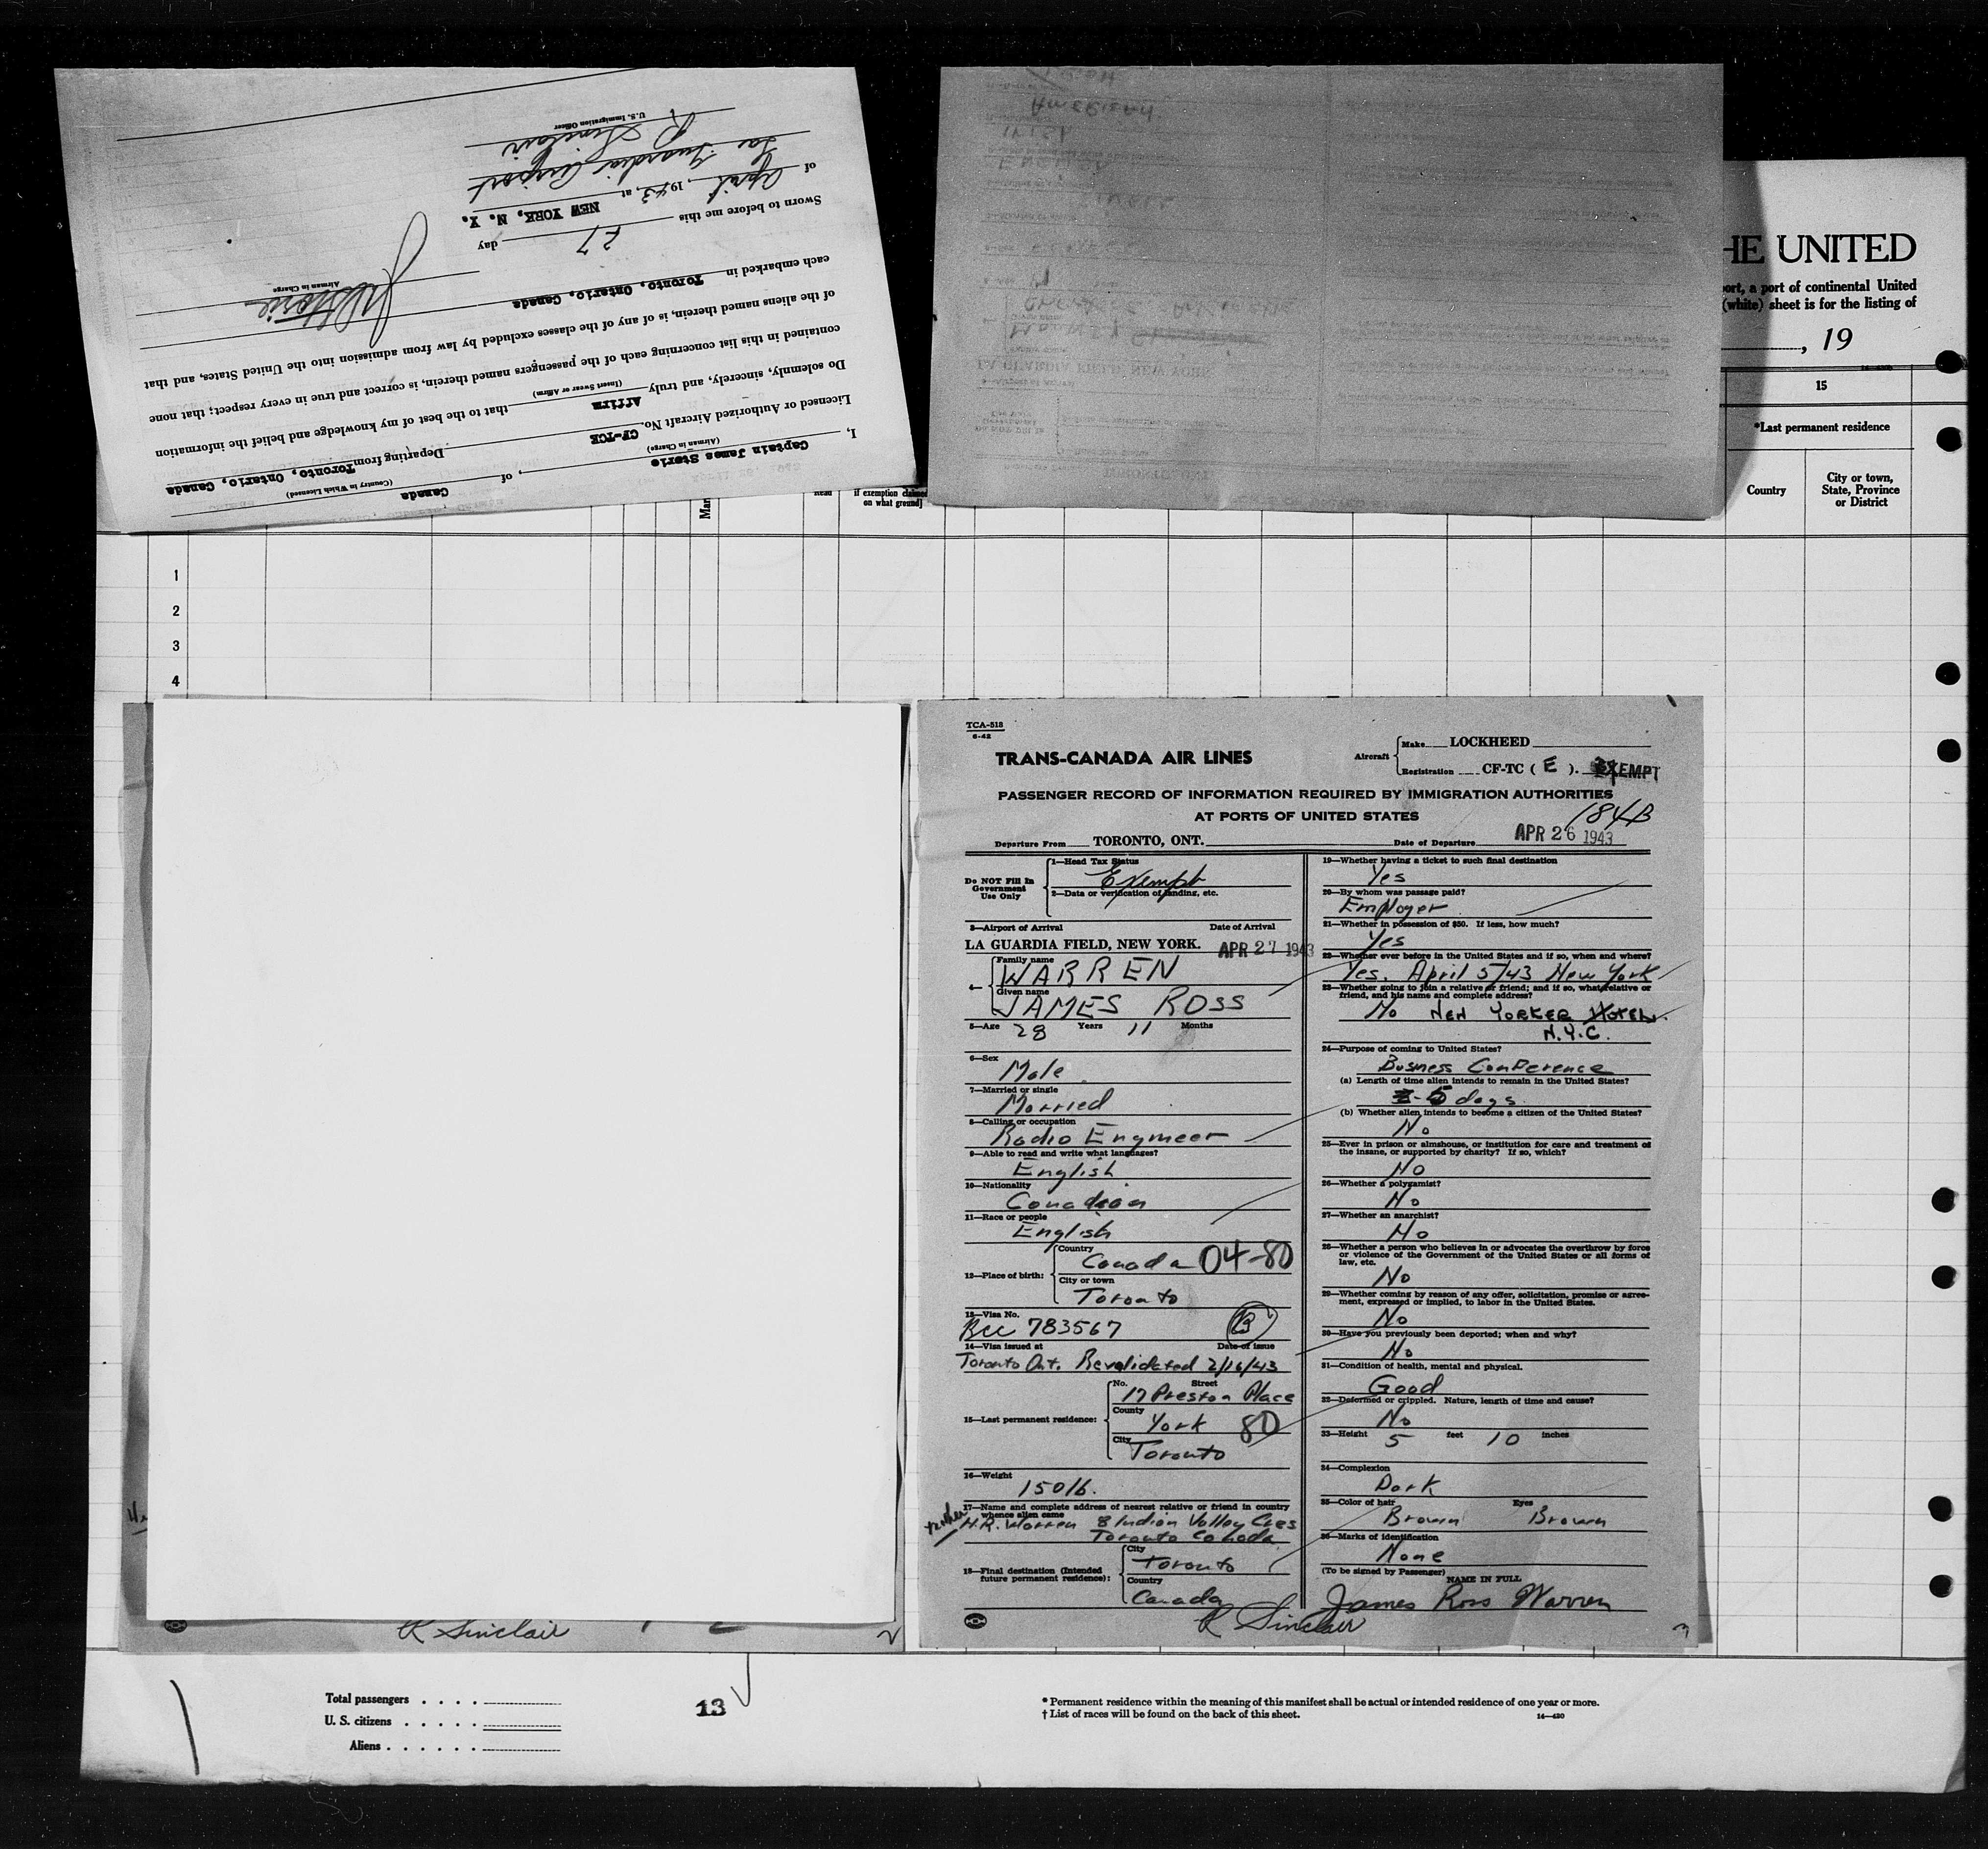 I, Captain James Storie, of Canada
(Airman in Charge) (Country in Which Licensed)
Licensed or Authorized Aircraft No. CF-TCE Departing from Toronto, Ontario, Canada
Do solemnly, sincerely, and truly Affirm that to the best of my knowledge and belief the information
(Insert Swear or Affirm)
contained in this list concerning each of the passengers named therein, is correct and true in every respect; that none
of the aliens named therein, is of any of the classes excluded by law from admission into the United States, and that
each embarked in Toronto, Ontario, Canada
Airman in Charge
Sworn to before me this 27 day
of April, 1943, at NEW YORK, N. Y.
La Guardia Airport
R Sinclair
U.S. Immigration Officer
LA GUARDIA FIELD, NEW YORK
HE UNITED
port, a port of continental United
(white) sheet is for the listing of
, 19
15
*Last permanent residence
Country
City or town,
State, Province
or District
Read
if exemption claimed
on what ground]
1
2
3
4
R Sinclair
2
TCA-518
6-42
TRANS-CANADA AIR LINES
Aircraft
Make LOCKHEED
Registration CF-TC ( E ). EXEMPT
PASSENGER RECORD OF INFORMATION REQUIRED BY IMMIGRATION AUTHORITIES
AT PORTS OF UNITED STATES
184B
Departure From TORONTO, ONT. Date of Departure APR 26 1943
Do NOT Fill In
Government
Use Only
1—Head Tax Status
Exempt
2—Data or verification of landing, etc.
3—Airport of Arrival Date of Arrival
LA GUARDIA FIELD, NEW YORK. APR 27 1943
4—
Family name
WARREN
Given name
JAMES ROSS
5—Age 28 Years 11 Months
6—Sex
Male
7—Married or single
Married
8—Calling or occupation
Radio Engineer
9—Able to read and write what languages?
English
10—Nationality
Canadian
11—Race or people
English
12—Place of birth:
Country
Canada 04-80
City or town
Toronto
13—Visa No.
BCC 783567 B
14—Visa issued at Date of issue
Toronto Ont. Revalidated 2/16/43
15—Last permanent residence:
No. Street
17 Preston Place
County
York 80
City
Toronto
16—Weight
150 lb.
17—Name and complete address of nearest relative or friend in country
whence alien came
H.R. Warren 8 Indian Valley Cres
Toronto Canada
18—Final destination (Intended
future permanent residence):
City
Toronto
Country
Canada
19—Whether having a ticket to such final destination
Yes
20—By whom was passage paid?
Employer
21—Whether in possession of $50. If less, how much?
Yes
22—Whether ever before in the United States and if so, when and where?
Yes. April 5/43 New York
23—Whether going to join a relative or friend; and if so, what relative or
friend, and his name and complete address?
No NEW YORKER HOTEL.
N.Y.C.
24—Purpose of coming to United States?
Business Conference
(a) Length of time alien intends to remain in the United States?
5 days
(b) Whether alien intends to become a citizen of the United States?
No
25—Ever in prison or almshouse, or institution for care and treatment of
the insane, or supported by charity? If so, which?
No
26—Whether a polygamist?
No
27—Whether an anarchist?
No
28—Whether a person who believes in or advocates the overthrow by force
or violence of the Government of the United States or all forms of
law, etc.
No
29—Whether coming by reason of any offer, solicitation, promise or agree-
ment, expressed or implied, to labor in the United States.
No
30—Have you previously been deported; when and why?
No
31—Condition of health, mental and physical.
Good
32—Deformed or crippled. Nature, length of time and cause?
No
33—Height 5 feet 10 inches
34—Complexion
Dark
35—Color of hair Eyes
Brown Brown
36—Marks of identification
None
(To be signed by Passenger)
NAME IN FULL
James Ross Warren
R Sinclair
Total passengers
U. S. citizens
Aliens
13
* Permanent residence within the meaning of this manifest shall be actual or intended residence of one year or more.
† List of races will be found on the back of this sheet.
14—430